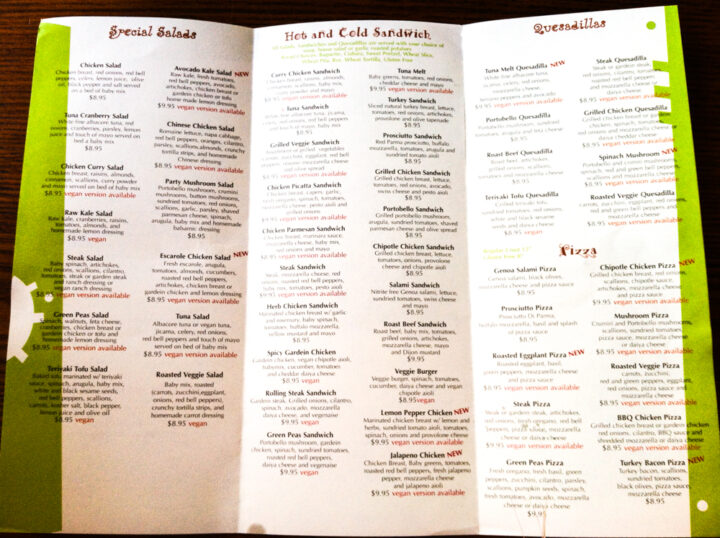 Special Salads
Chicken Salad
Chicken breast, red onions, red bell
peppers, celery, lemon juice, olive
oil, black pepper and salt served
on a bed of baby mix
$8.95
Tuna Cranberry Salad
White fine albacore tuna, red
onions, cranberries, parsley, lemon
juice and touch of mayo served on
bed a baby mix
$8.95
Chicken Curry Salad
Chicken breast, raisins, almonds,
cinnamon, scallions, curry powder
and mayo served on bed of baby mix
$8.95
Raw Kale Salad
Raw Kale, cranberries, raisins,
tomatoes, almonds, and
homemade lemon dressing
$8.95 vegan
Steak Salad
Baby spinach, artichokes,
red onions, scallions, cilantro,
tomatoes, steak or garden steak
and ranch dressing or
vegan ranch dressing
$8.95 vegan version available
Green Peas Salad
Spinach, walnuts, feta cheese,
cranberries, chicken breast or
garden chicken or tofu and
homemade lemon dressing
$8.95 vegan version available
Teriyaki Tofu Salad
Baked tofu, marinated w/ teriyaki
sauce, spinach, arugula, baby mix,
white and black sesame seeds,
red bell peppers, scallions,
carrots, kosher salt, black pepper,
lemon juice and olive oil
$8.95 vegan
Avocado Kale Salad NEW
Raw kale, fresh tomatoes,
red bell peppers, avocado,
artichokes, chicken breast or
garden chicken or tofu
home made lemon dressing
$8.95 vegan version available
Chinese Chicken Salad
Romaine lettuce, napa cabbage,
red bell peppers, oranges, cilantro,
parsley, scallions, almonds, crunchy
tortilla strips, and homemade
Chinese dressing
$8.95 vegan version available
Party Mushroom Salad
Portobello mushrooms, crumini
mushrooms, button mushrooms,
sundried tomatoes, red onions,
scallions, garlic, parsley, shaved
parmesan cheese, spinach,
arugula, baby mix and homemade
balsamic dressing
$8.95
Escarole Chicken Salad NEW
Fresh escarole, arugula,
tomatoes, almonds, cucumbers,
roasted red bell peppers,
artichokes, chicken breast or
gardein chicken and lemon dressing
$8.95 vegan version available
Tuna Salad
Albacore tuna or vegan tuna,
picante, celery, red onions,
red bell peppers and touch of mayo
served on bed of baby mix
$8.95 vegan version available
Roasted Veggie Salad
Baby mix, roasted
(carrots, zucchini, eggplant,
onions, red bell peppers),
crunchy tortilla strips, and
homemade carrot dressing
$8.95
Hot and Cold Sandwich
Curry Chicken Sandwich
Chicken breast, raisins, almonds,
cinnamon, scallions, baby mix,
curry powder and mayo
$8.95
Tuna Sandwich
red bell peppers, tomatoes
and touch of mayo, baby mix
$8.95 vegan version available
Grilled Veggie Sandwich
$8.95 vegan version available
Chicken Picatta Sandwich
$8.95 vegan version available
Chicken Parmesan Sandwich
Chicken breast, marinara sauce,
mozzarella cheese, baby mix,
onions and mayo
$8.95
Steak Sandwich
Steak, mozzarella cheese, red
onions, roasted red bell peppers,
baby mix, tomatoes, pesto aioli
$8.95 vegan version available
Herb Chicken Sandwich
Marinated chicken breast w/ garlic
and rosemary, baby spinach,
tomatoes, buffalo mozzarella,
yellow mustard and mayo
$8.95
Spicy Gardein Chicken
Gardein chicken, vegan chipotle aioli,
baby mix, cucumber, tomatoes
and cheddar daiya cheese
$8.95 vegan
Rolling Steak Sandwich
Garden steak, Grilled onions, cilantro,
spinach, avocado, mozzarella
daiya cheese, and vegenaise
$9.95 vegan
Green Peas Sandwich
Portobello mushroom, gardein
chicken, spinach, sundried tomatoes,
roasted red bell peppers,
daiya cheese and vegenaise
$9.95 vegan
Tuna Melt
Baby greens, tomatoes, red onions,
cheddar cheese and mayo
$8.95 vegan version available
Turkey Sandwich
Sliced natural turkey breast, lettuce,
tomatoes, red onions, artichokes,
provolone and olive tapenade
$8.95
Prosciutto Sandwich
Red Parma prosciutto, buffalo
mozzarella, tomatoes, arugula and
sundried tomato aioli
$8.95
Grilled Chicken Sandwich
Grilled chicken breast, lettuce,
tomatoes, red onions, avocado,
swiss cheese and pesto aioli
$8.95
Portobello Sandwich
Grilled portobello mushrooms,
arugula, sundried tomatoes, shaved
parmesan cheese and olive spread
$8.95
Chipotle Chicken Sandwich
Grilled chicken breast, lettuce,
tomatoes, onions, provolone
cheese and chipotle aioli
$8.95
Salami Sandwich
Nitrite free Genoa salami, lettuce,
sundried tomatoes, swiss cheese
and mayo
$8.95
Roast Beef Sandwich
Roast beef, baby mix, tomatoes,
grilled onions, artichokes,
mozzarella cheese, mayo,
and Dijon mustard
$9.95
Veggie Burger
Veggie burger, spinach, tomatoes,
cucumber, daiya cheese and vegan
chipotle aioli
$8.95vegan
Lemon Pepper Chicken NEW
Marinated chicken breast w/ lemon and
herbs, sundried tomato aioli, tomatoes,
spinach, onions and provolone cheese
$9.95 vegan version available
Jalapeno Chicken NEW
Chicken Breast, Baby greens, tomatoes,
roasted red bell peppers, fresh jalapeno
pepper, mozzarella cheese
and jalapeno aioli
$9.95 vegan version available
Quesadillas
Tuna Melt Quesadilla NEW
White fine albacore tuna,
picante, celery, red onions,
cheddar cheese,
serrano peppers and avocado
$8.95 vegan version available
Portobello Quesadilla
Portobello mushroom, sundried
tomatoes, arugula and feta cheese
$8.95
Roast Beef Quesadilla
Roast beef, artichokes,
grilled onions, tomatoes
and mozzarella cheese
$8.95
Teriyaki Tofu Quesadilla
Grilled teriyaki tofu,
sundried tomatoes, red onions,
white and black sesame
seeds and daiya cheese
$8.95 vegan
Steak Quesadilla
Steak or garden steak,
red onions, cilantro, tomatoes,
roasted red bell peppers
and mozzarella cheese
$8.95 vegan version available
Grilled Chicken Quesadilla
Grilled chicken or garden chicken,
spinach, tomatoes, red onions,
daiya cheddar cheese
$8.95 vegan version available
Spinach Mushroom NEW
Portobello and crumini mushrooms,
spinach, red and green bell peppers,
scallions and mozzarella cheese
$8.95 vegan version available
Roasted Veggie Quesadilla
carrots, zucchini, eggplant, red onions,
red and green bell peppers and
mozzarella cheese
$8.95
Pizza
Genoa Salami Pizza
Genoa salami, black olives,
mozzarella cheese and pizza sauce
$8.95
Prosciutto Pizza
Prosciutto Di Parma,
buffalo mozzarella, basil and splash
of pizza sauce
$8.95
Roasted Eggplant Pizza NEW
Roasted eggplant, basil,
green peppers, mozzarella cheese
and pizza sauce
$8.95
Steak Pizza
Steak or garden steak, artichokes,
red onions, fresh oregano, red bell
peppers, pizza sauce, mozzarella
cheese or daiya cheese
$8.95 vegan version available
Green Peas Pizza
Fresh oregano, fresh basil, green
peppers, zucchini, cilantro, parsley,
scallions, pumpkin seeds, spinach,
fresh tomatoes, avocado, mozzarella
cheese or daiya cheese
$9.95
Chipotle Chicken Pizza NEW
Grilled chicken breast, red onions,
scallions, chipotle sauce,
mozzarella cheese
and pizza sauce
$8.95
Mushroom Pizza
Crumini and Portobello mushrooms,
scallions, sundried tomatoes
pizza sauce, mozzarella cheese
or daiya cheese
$8.95 vegan version available
Roasted Veggie Pizza
carrots, zucchini,
red and green peppers, eggplant,
red onions, pizza sauce and
mozzarella cheese
$8.95
BBQ Chicken Pizza
Grilled chicken breast or garden chicken,
red onions, cilantro, BBQ sauce and
shredded mozzarella or daiya cheese
$8.95 vegan version available
Turkey Bacon Pizza NEW
Turkey bacon, scallions,
sundried tomatoes,
black olives, pizza sauce,
mozzarella cheese
$8.95